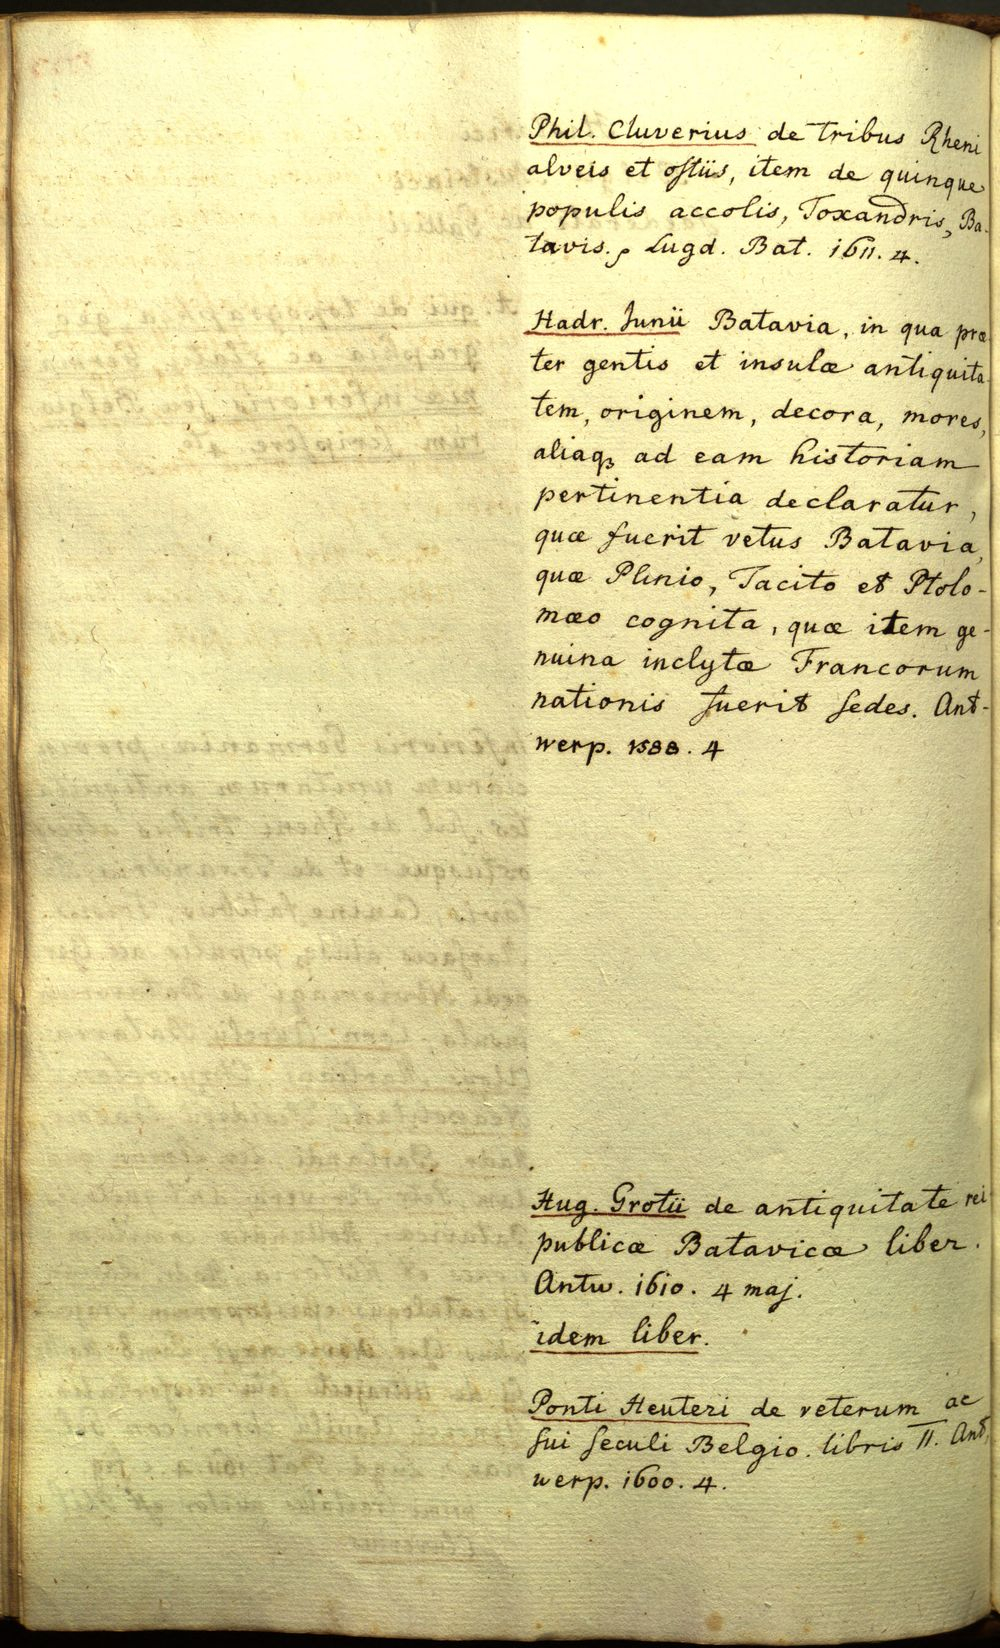 Phil. Cluverius de tribus Rheni
alveis et ostiis, item de quinque
populis accolis, Toxandris, Ba-
tavis. Lugd. Bat. 1611. 4.
Hadr. Junii Batavia, in qua præ-
ter gentis et insulæ antiquita-
tem, originem, decora, mores,
aliaq3 ad eam historiam
pertinentia declaratur,
quæ fuerit vetus Batavia,
quæ Plinio, Tacito et Ptolo-
mæo cognita, quæ item ge-
nuina inclytæ Francorum
nationis fuerit sedes. Ant-
werp. 1588. 4
Hug. Grotii de antiquitate rei
publicæ Batavicæ liber.
Antw. 1610. 4 maj.
idem liber.
Ponti Heuteri de veterum ac
sui seculi Belgio. libris II. Ant,
werp. 1600. 4.